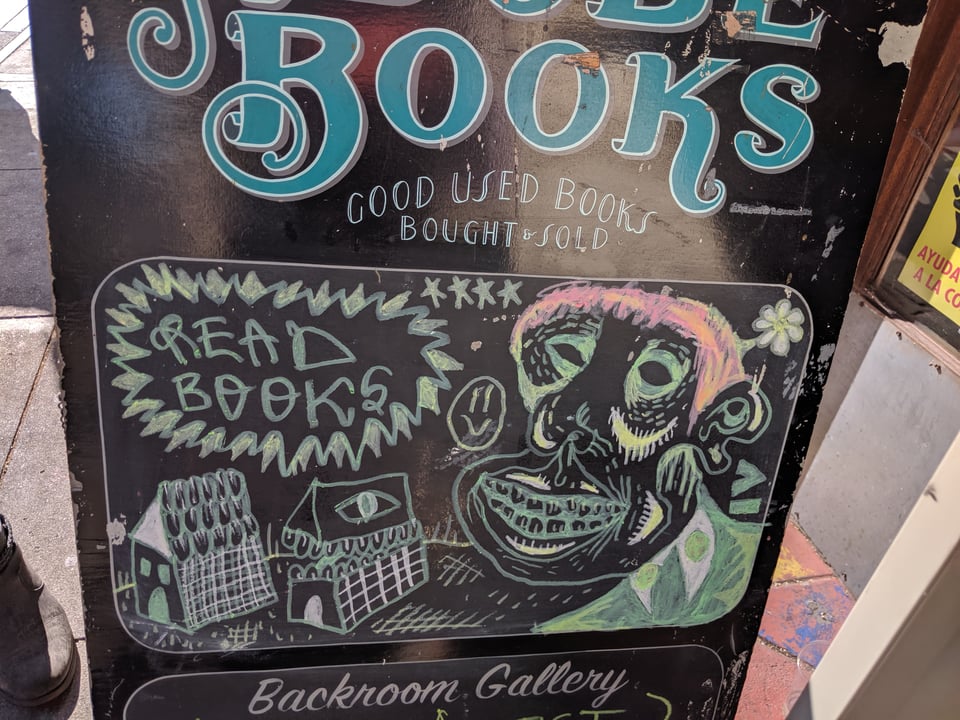 ADOBE
BOOKS
GOOD USED BOOKS
BOUGHT & SOLD
READ
BOOKS
Backroom Gallery
AYUDA
A LA